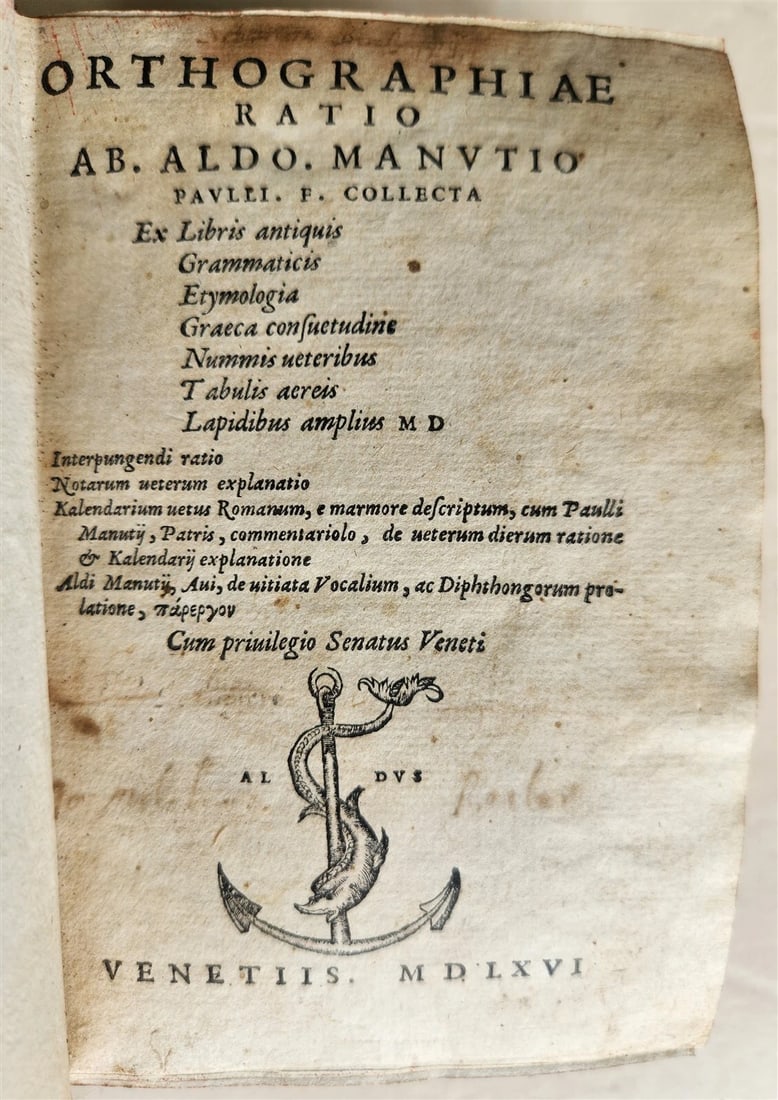 ORTHOGRAPHIAE
RATIO
AB. ALDO. MANVTIO
PAVLLI. F. COLLECTA
Ex Libris antiquis
Grammaticis
Etymologia
Graeca conſuetudine
Nummis ueteribus
Tabulis aereis
Lapidibus amplius M D
Interpungendi ratio
Notarum ueterum explanatio
Kalendarium uetus Romanum, e marmore deſcriptum, cum Paulli
Manutij, Patris, commentariolo, de ueterum dierum ratione
& Kalendarij explanatione
Aldi Manutij, Aui, de uitiata Vocalium, ac Diphthongorum pro-
latione, πάρεργον
Cum priuilegio Senatus Veneti
AL DVS
VENETIIS. MDLXVI